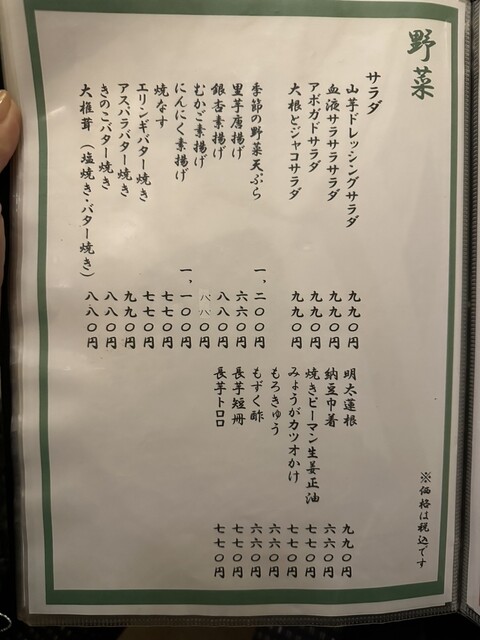 野菜
サラダ
山芋ドレッシングサラダ 九九〇円
血液サラサラサラダ 九九〇円
アボガドサラダ 九九〇円
大根とジャコサラダ 九九〇円
季節の野菜天ぷら 一、二〇〇円
里芋唐揚げ 六六〇円
銀杏素揚げ 八八〇円
むかご素揚げ 八八〇円
にんにく素揚げ 一、一〇〇円
焼なす 七七〇円
エリンギバター焼き 七七〇円
アスパラバター焼き 九九〇円
きのこバター焼き 八八〇円
大椎茸（塩焼き・バター焼き） 八八〇円
明太蓮根 九九〇円
納豆巾着 六六〇円
焼きピーマン生姜正油 七七〇円
みょうがカツオかけ 七七〇円
もろきゅう 六六〇円
もずく酢 六六〇円
長芋短冊 七七〇円
長芋トロロ 七七〇円
※価格は税込です